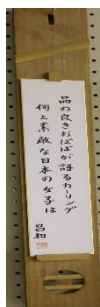 品の良きおばばが語るカーリング
何と素敵な日本の女子は
昌和